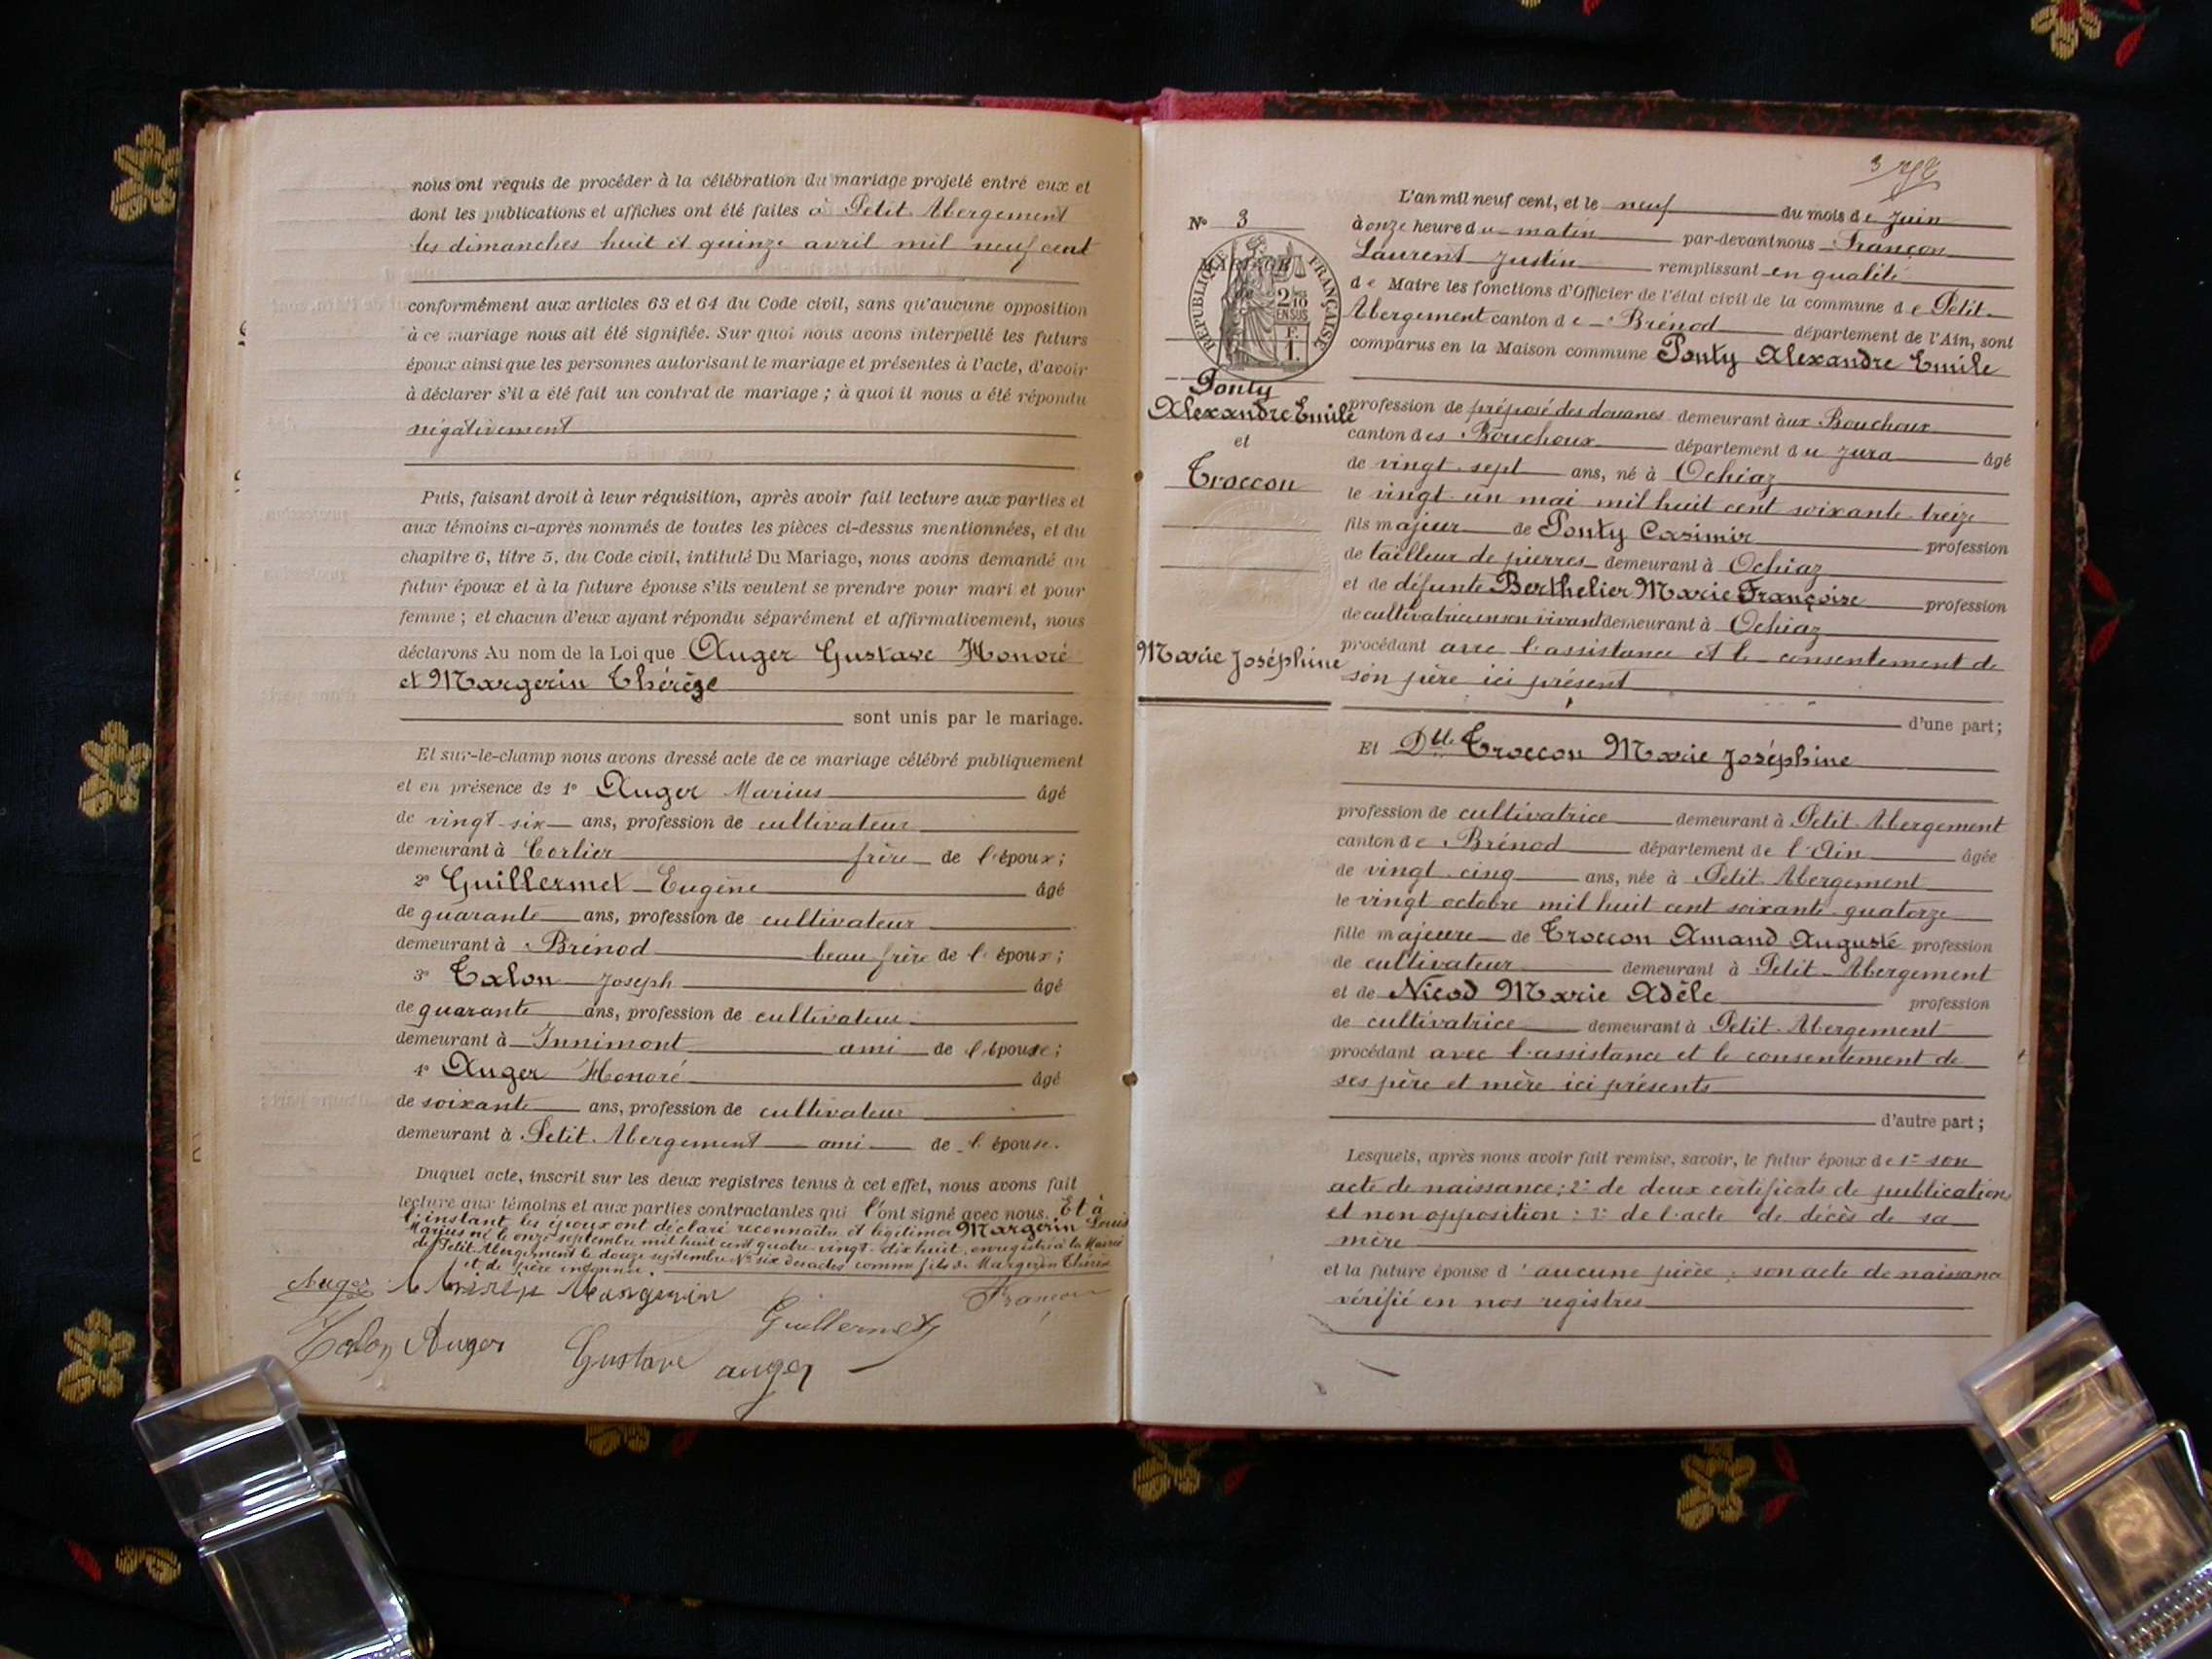 nous ont requis de procéder à la célébration du mariage projeté entre eux et
dont les publications et affiches ont été faites à Petit-Abergement
les dimanches huit et quinze avril mil neuf cent
conformément aux articles 63 et 64 du Code civil, sans qu'aucune opposition
à ce mariage nous ait été signifiée. Sur quoi nous avons interpellé les futurs
époux ainsi que les personnes autorisant le mariage et présentes à l'acte, d'avoir
à déclarer s'il a été fait un contrat de mariage ; à quoi il nous a été répondu
négativement
Puis, faisant droit à leur réquisition, après avoir fait lecture aux parties et
aux témoins ci-après nommés de toutes les pièces ci-dessus mentionnées, et du
chapitre 6, titre 5, du Code civil, intitulé Du Mariage, nous avons demandé au
futur époux et à la future épouse s'ils veulent se prendre pour mari et pour
femme ; et chacun d'eux ayant répondu séparément et affirmativement, nous
déclarons Au nom de la Loi que Auger Gustave Honoré
et Margerin Thérèze
sont unis par le mariage.
Et sur-le-champ nous avons dressé acte de ce mariage célébré publiquement
et en présence de 1° Auger Marius âgé
de vingt-six ans, profession de cultivateur
demeurant à Corlier frère de l'époux ;
2° Guillermet Eugène âgé
de quarante ans, profession de cultivateur
demeurant à Brénod beau frère de l'époux ;
3° Talon Joseph âgé
de quarante ans, profession de cultivateur
demeurant à Innimont ami de l'épouse ;
4° Auger Honoré âgé
de soixante ans, profession de cultivateur
demeurant à Petit-Abergement ami de l'épouse.
Duquel acte, inscrit sur les deux registres tenus à cet effet, nous avons fait
lecture aux témoins et aux parties contractantes qui l'ont signé avec nous. Et à
l'instant les époux ont déclaré reconnaître et légitimer Margerin Louis
Marius né le onze septembre mil huit cent quatre-vingt-dix huit, enregistré à la Mairie
de Petit-Abergement le douze septembre N° six des actes comme fils de Margerin Thérèze
et de père inconnu.
Auger Margerin Françon
Talon Auger Gustave auger Guillermet
3
N° 3
MARIAGE
de
RÉPUBLIQUE FRANÇAISE
2/10
EN SUS
F.
1.
Ponty
Alexandre Emile
et
Troccon
Marie Joséphine
L'an mil neuf cent, et le neuf du mois de Juin
à onze heure du matin par-devant nous Françon
Laurent Justin remplissant en qualité
de Maire les fonctions d'Officier de l'état civil de la commune de Petit-
Abergement canton de Brénod département de l'Ain, sont
comparus en la Maison commune Ponty Alexandre Emile
profession de préposé des douanes demeurant aux Bouchoux
canton des Bouchoux département du Jura âgé
de vingt-sept ans, né à Ochiaz
le vingt-un mai mil huit cent soixante-treize
fils majeur de Ponty Casimir profession
de tailleur de pierres demeurant à Ochiaz
et de défunte Berthelier Marie Françoise profession
de cultivatrice en son vivant demeurant à Ochiaz
procédant avec l'assistance et le consentement de
son père ici présent
d'une part ;
Et Dlle Troccon Marie Joséphine
profession de cultivatrice demeurant à Petit-Abergement
canton de Brénod département de l'Ain âgée
de vingt-cinq ans, née à Petit-Abergement
le vingt octobre mil huit cent soixante-quatorze
fille majeure de Troccon Amand Auguste profession
de cultivateur demeurant à Petit-Abergement
et de Nicod Marie Adèle profession
de cultivatrice demeurant à Petit-Abergement
procédant avec l'assistance et le consentement de
ses père et mère ici présents
d'autre part ;
Lesquels, après nous avoir fait remise, savoir, le futur époux de 1° son
acte de naissance ; 2° de deux certificats de publication
et non opposition ; 3° de l'acte de décès de sa
mère
et la future épouse d'aucune pièce, son acte de naissance
vérifié en nos registres